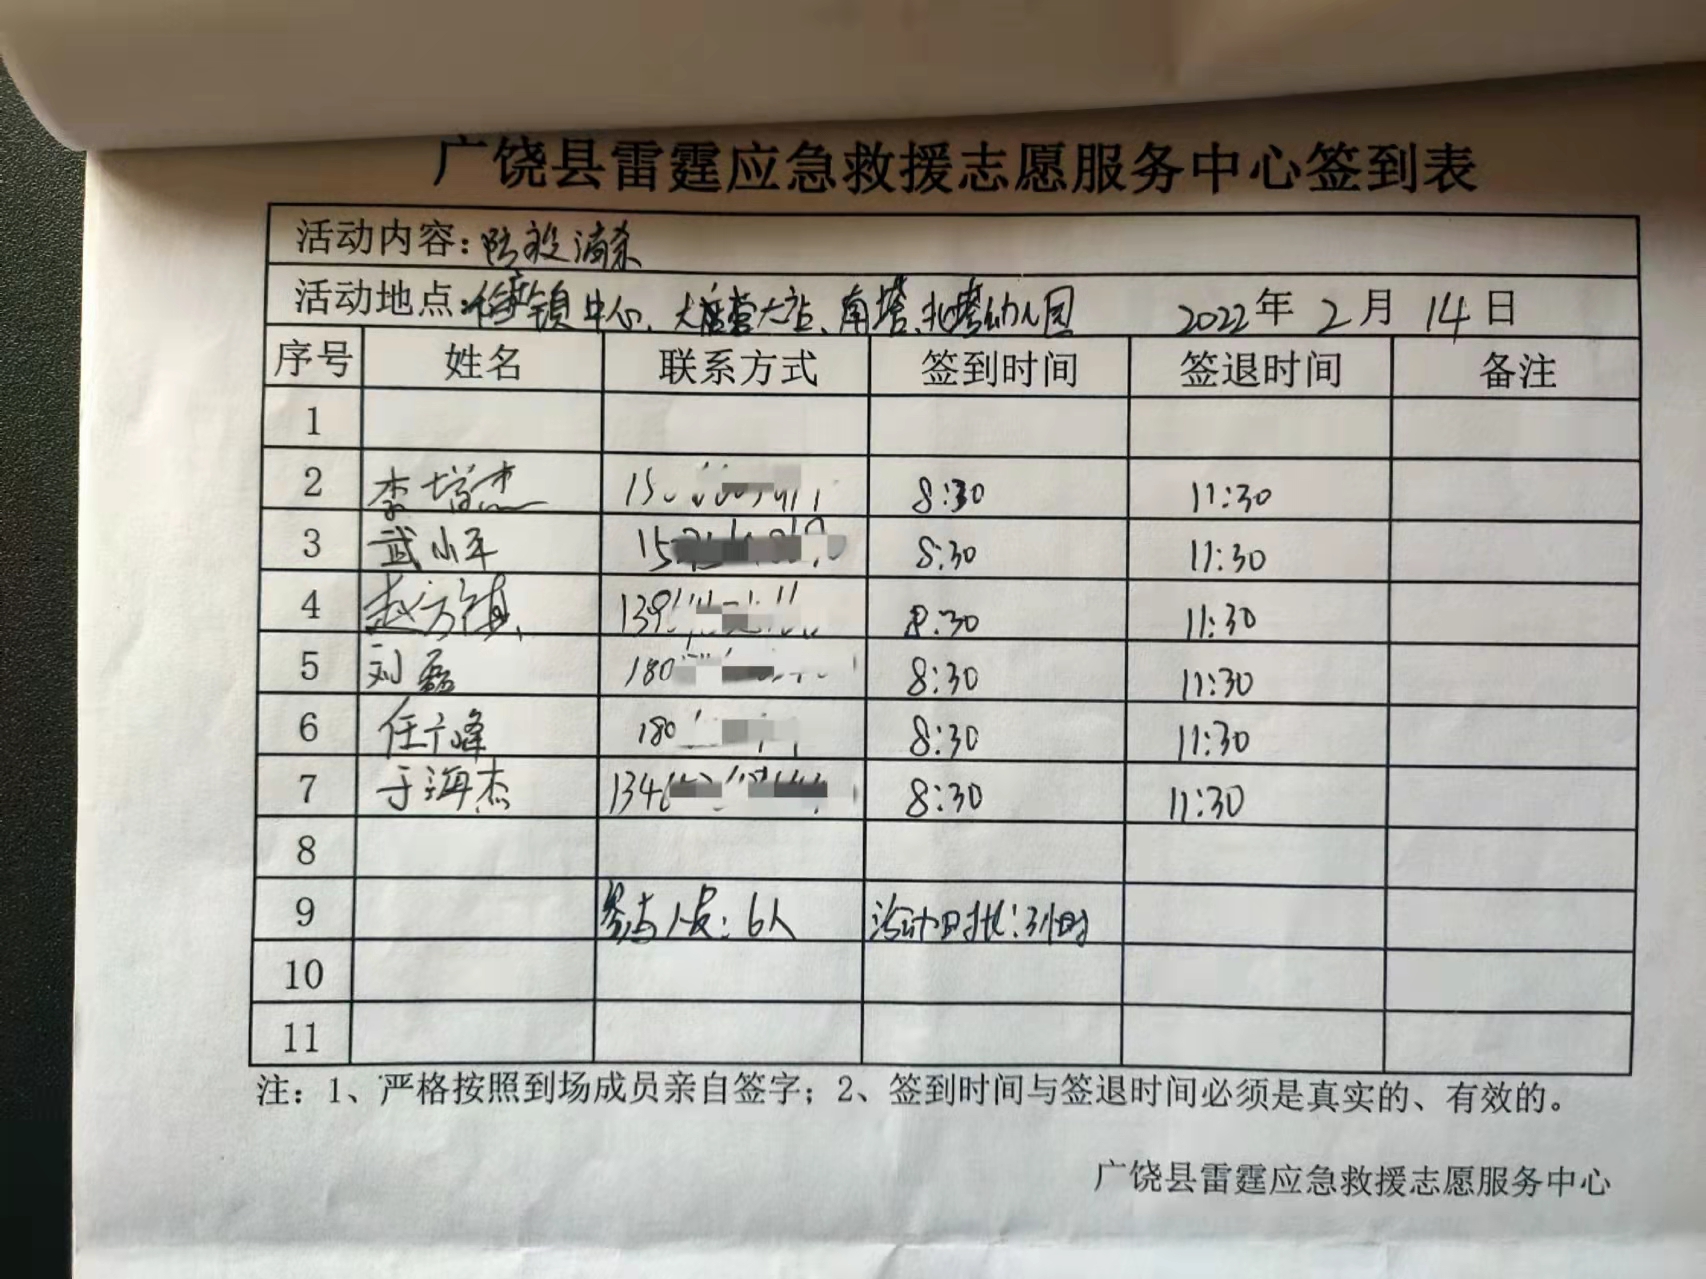 广饶县雷霆应急救援志愿服务中心签到表
活动内容：防疫消杀
活动地点：镇中心、大营大站、南塔、北塔幼儿园 2022年2月14日
序号 姓名 联系方式 签到时间 签退时间 备注
1
2 李增杰 8:30 11:30
3 武小军 8:30 11:30
4 赵方镇 8:30 11:30
5 刘磊 180 8:30 11:30
6 任广峰 180 8:30 11:30
7 于海杰 134 8:30 11:30
8
9 参与人员：6人 活动时长：3小时
10
11
注：1、严格按照到场成员亲自签字；2、签到时间与签退时间必须是真实的、有效的。
广饶县雷霆应急救援志愿服务中心